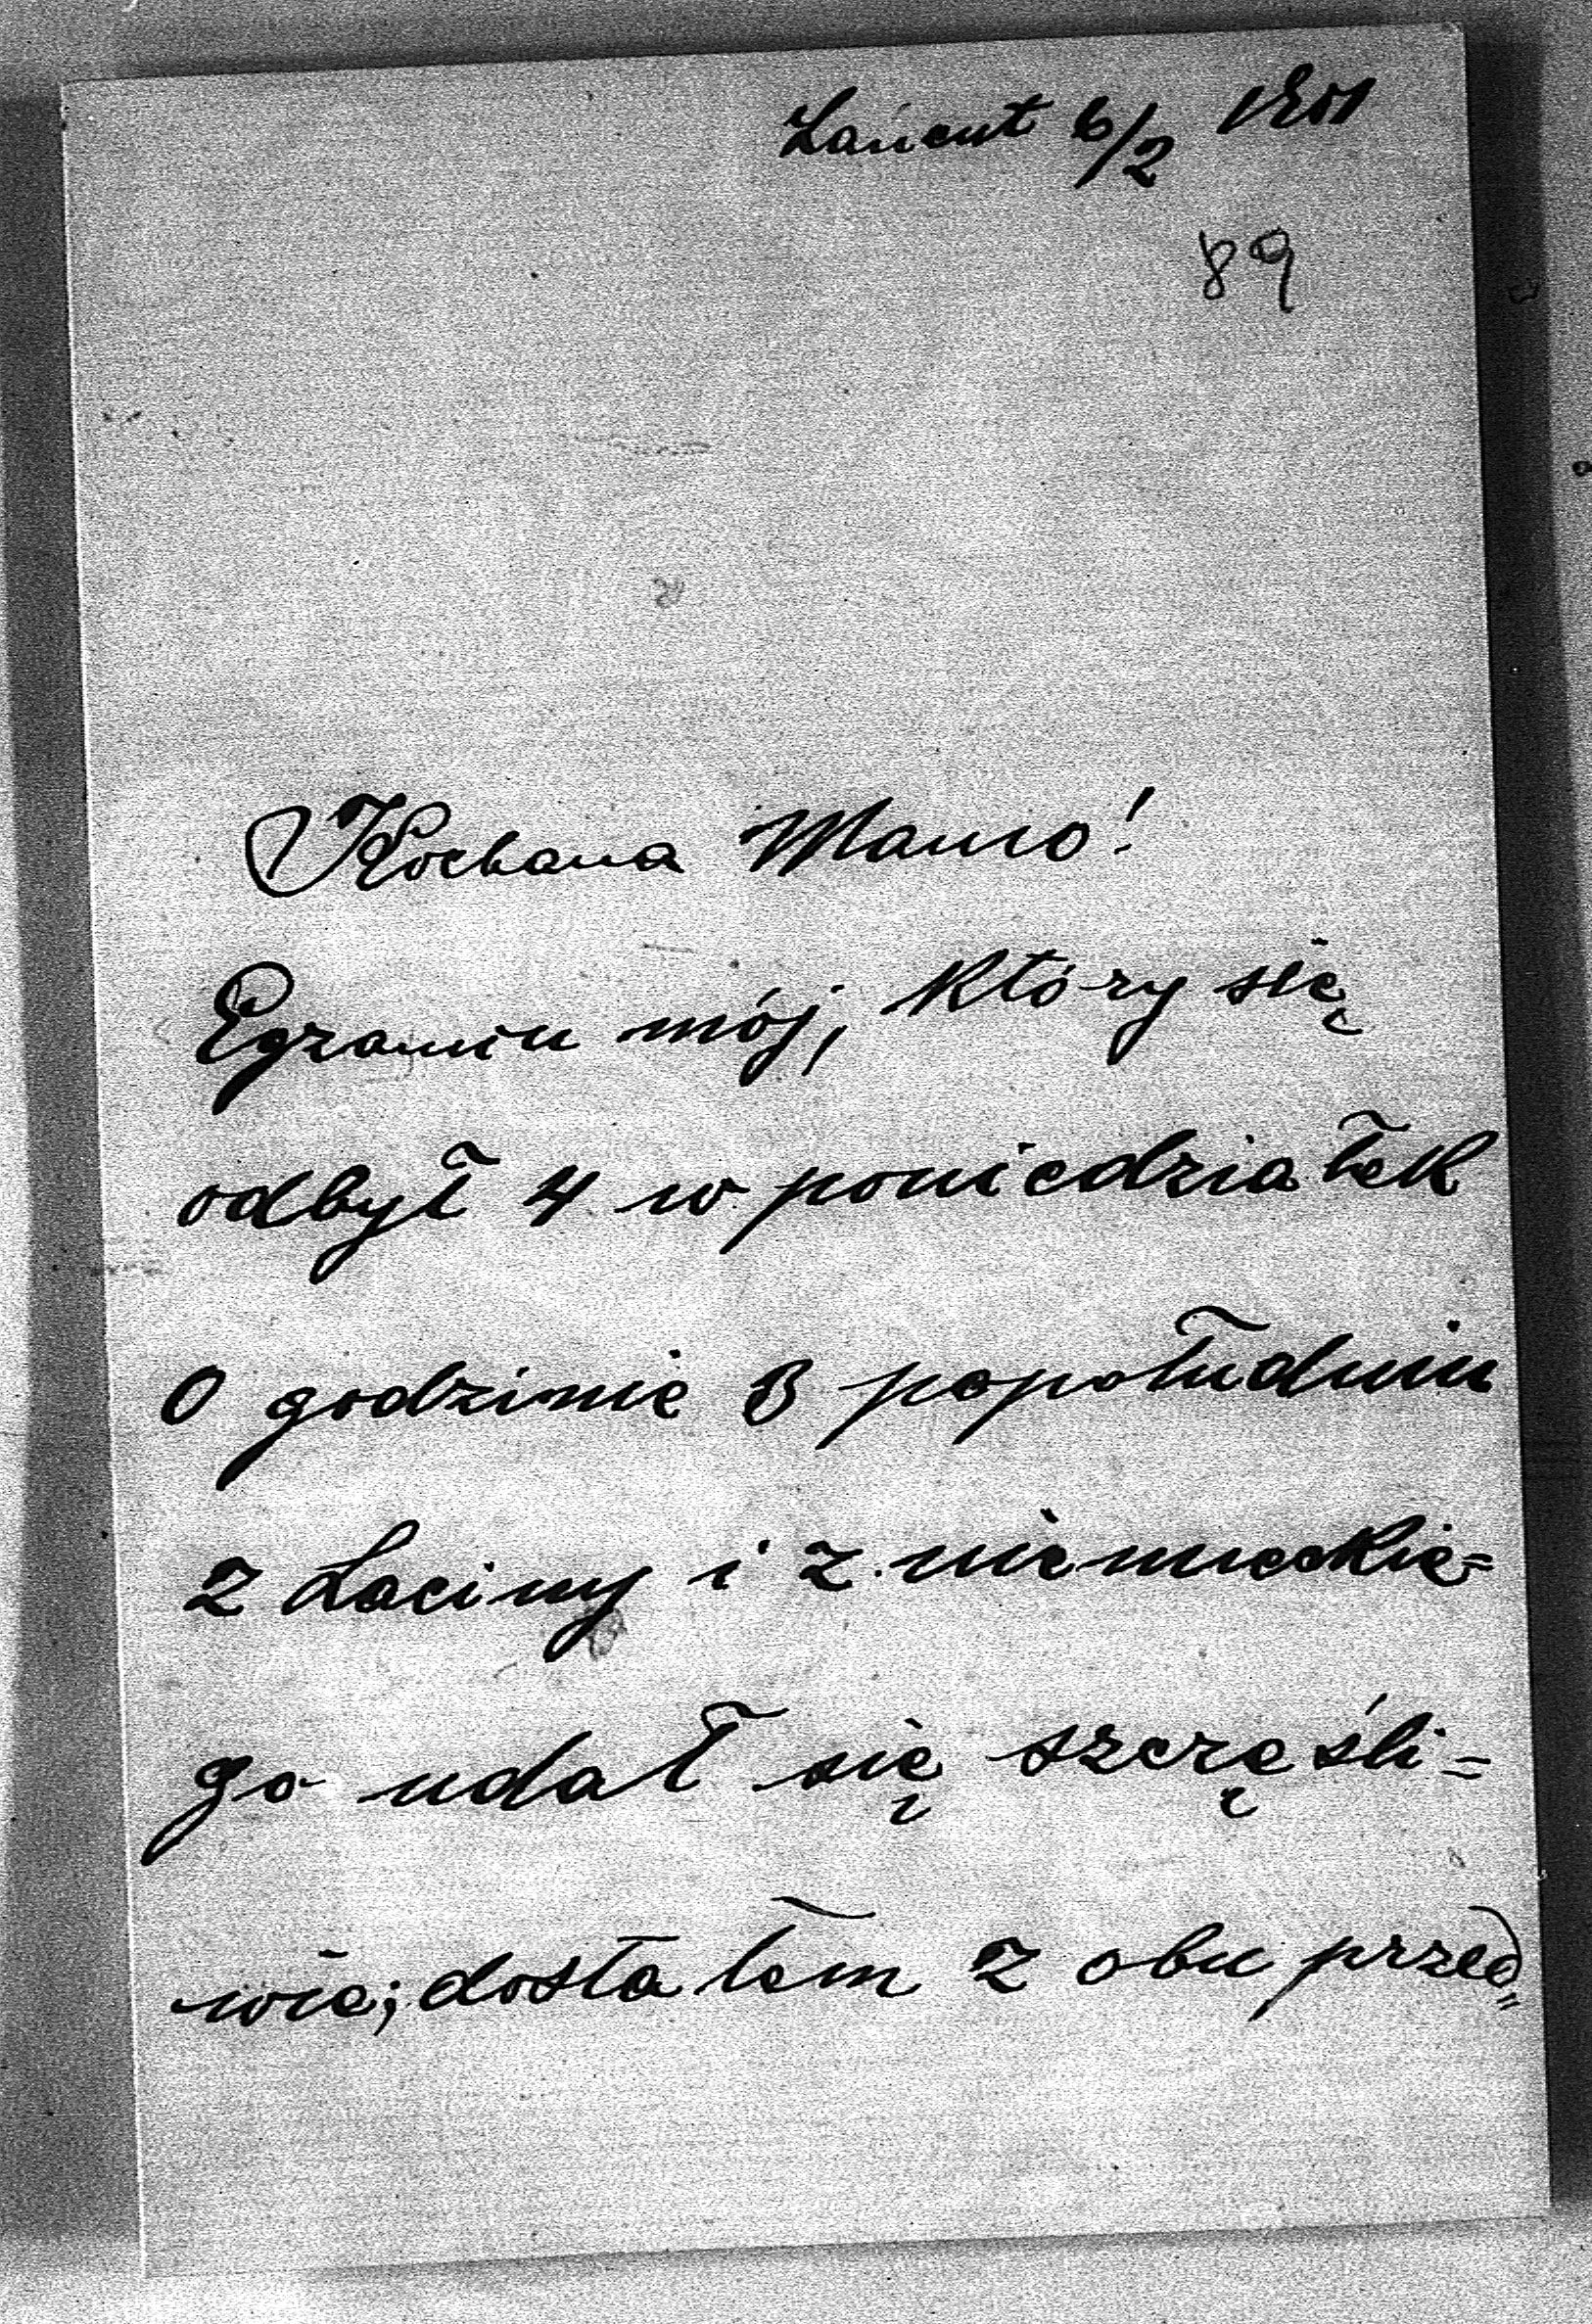 Łańcut 6/2 1901
89
Kochana Mamo!
Egzamin mój, który się
odbył 4 w poniedziałek
o godzinie 3 popołudniu
z Łaciny i z niemieckie=
go udał się szczęśli=
wie; dostałem z obu przed=